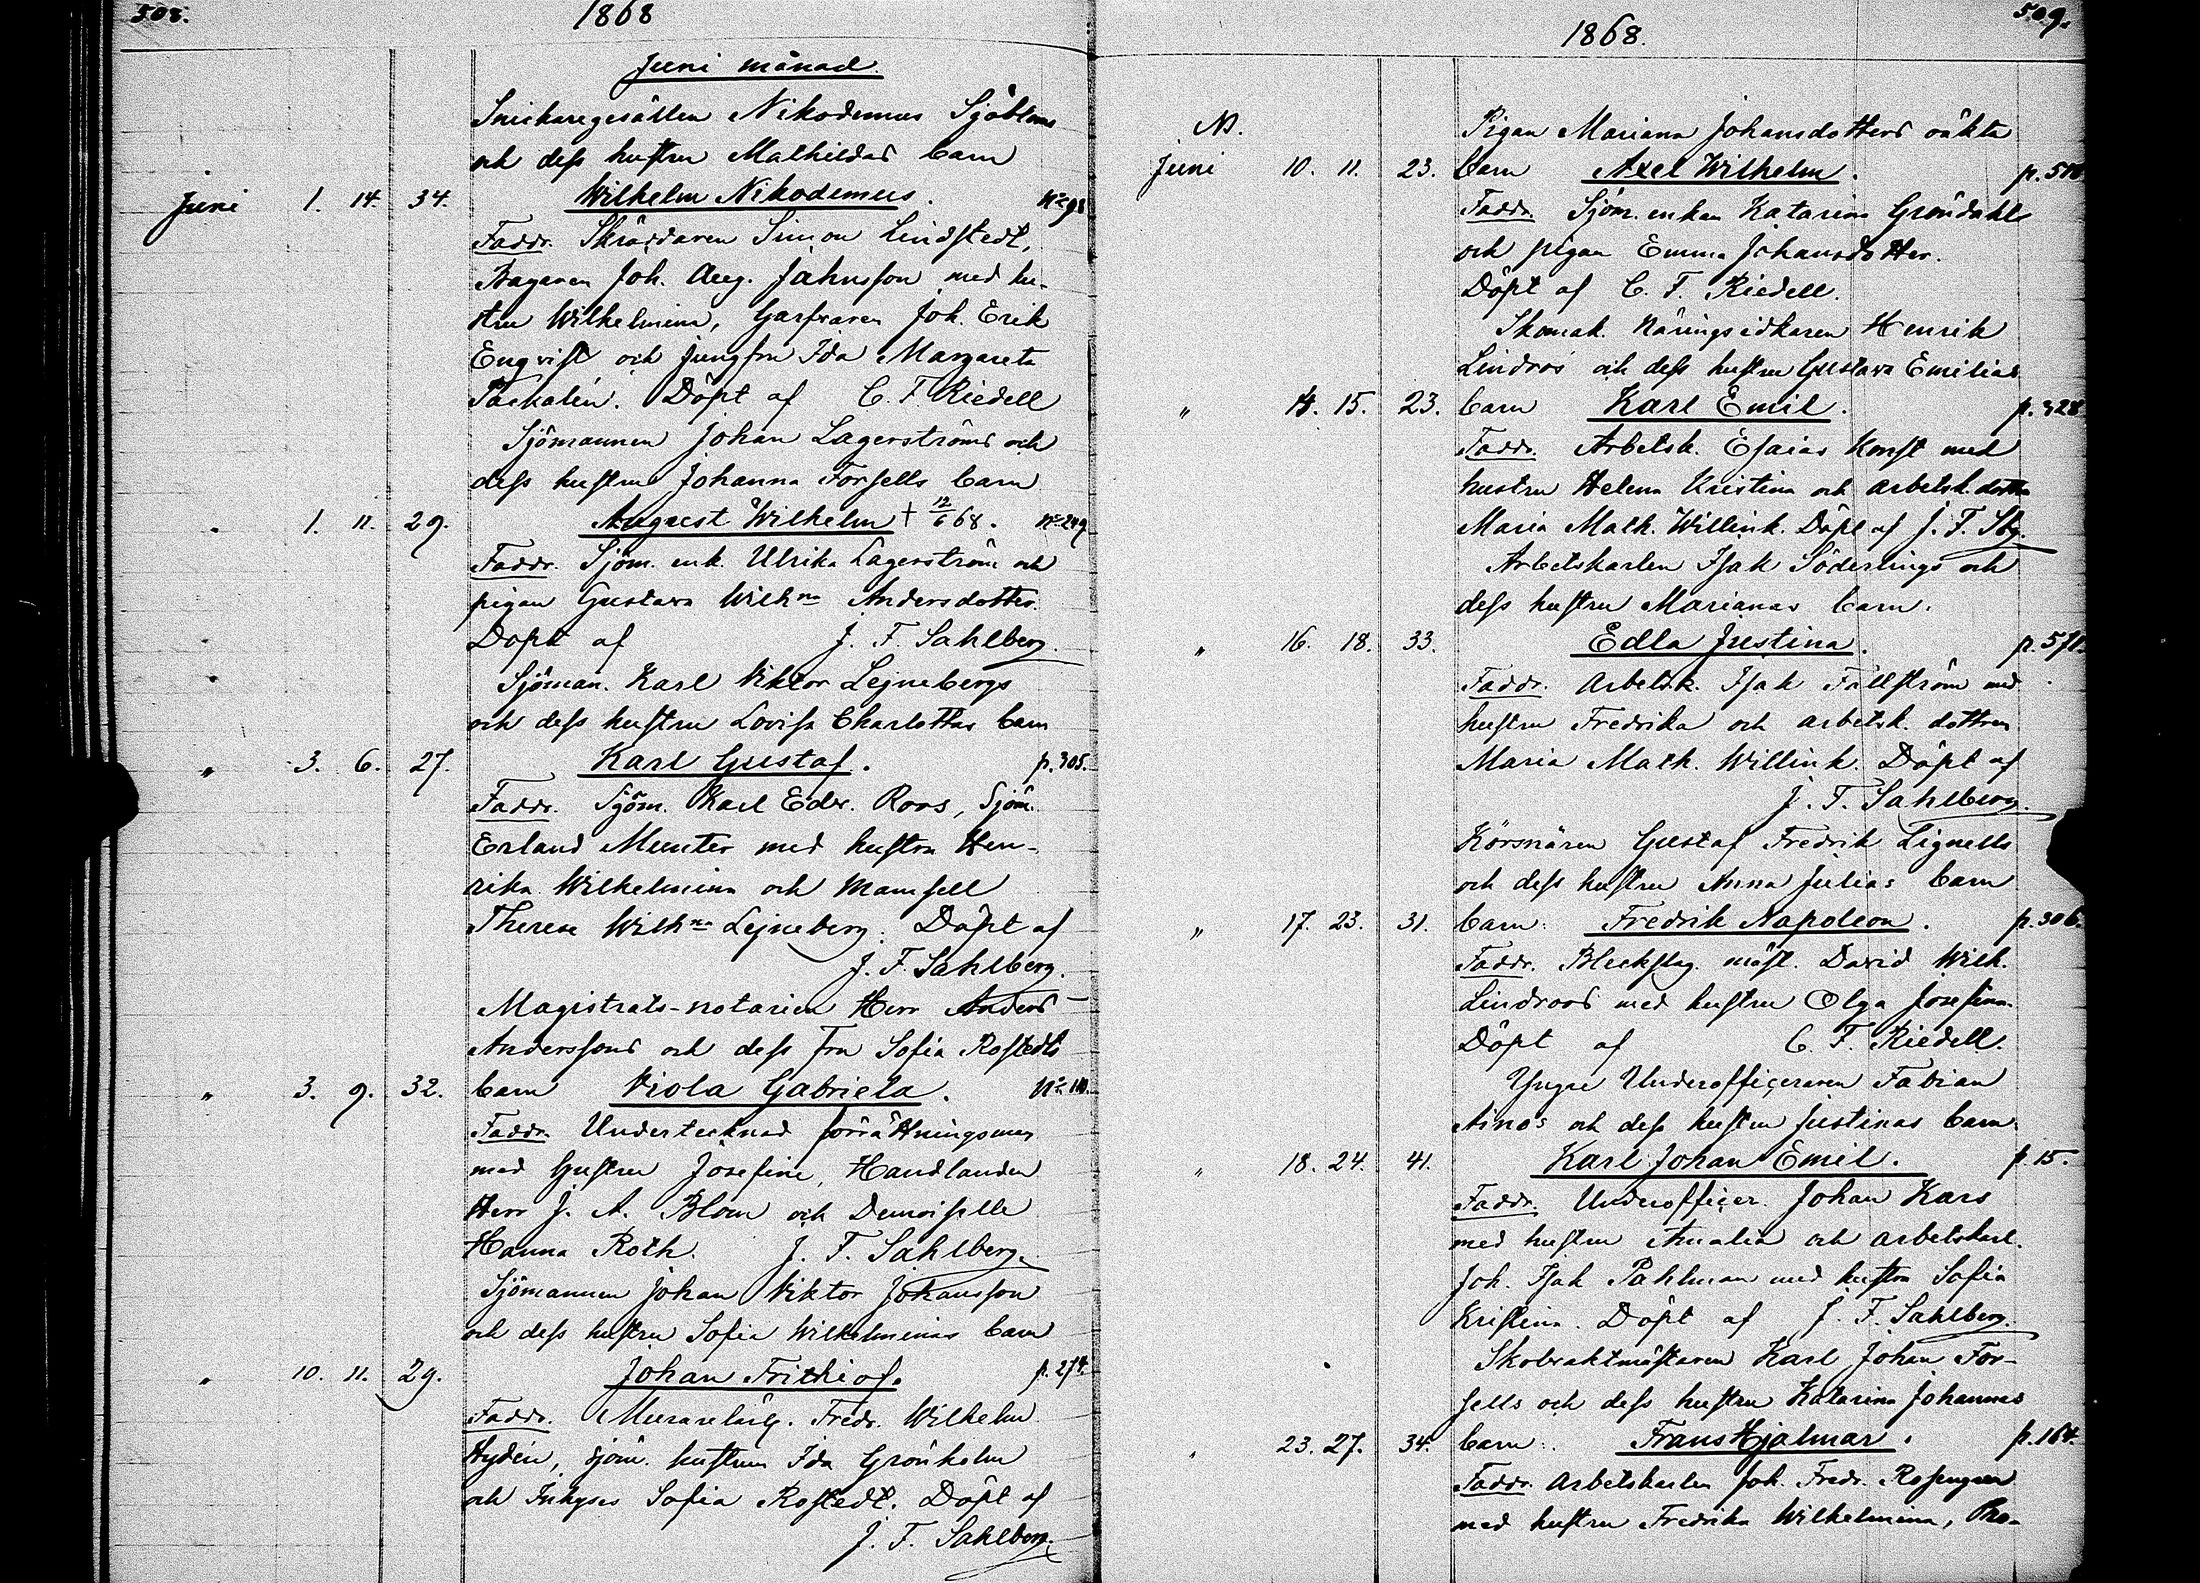 508.
1868
Juni månad.
Snickaregesällen Nikodemus Sjöbloms
och dess hustru Mathildas barn
Juni 1. 14. 34. Wilhelm Nikodemus. No 98
Faddr. Skräddaren Simon Lindstedt,
Bagaren Joh. Aug. Jahnsson med hu-
stru Wilhelmina, Garfvaren Joh. Erik
Enqvist och jungfru Ida Margareta
Döpt af C. F. Riedell
Sjömannen Johan Lagerströms och
dess hustru Johanna Forsells barn
" 1. 11. 29. August Wilhelm † 12/6 68. No 249
Faddr. Sjöm. enk. Ulrika Lagerström och
pigan Gustava Wilhna Andersdotter.
Döpt af J. F. Sahlberg.
Sjöman. Karl Viktor Lejnebergs
och dess hustru Lovisa Charlottas barn
" 3. 6. 27. Karl Gustaf. p. 305.
Faddr. Sjöm. Karl Edv. Roos, Sjöm.
Erland Munter med hustru Hen-
rika Wilhelmina och Mamsell
Therese Wilhna Lejneberg. Döpt af
J. F. Sahlberg.
Magistrats-notarien Herr Anders
Anderssons och dess Fru Sofia Rostedts
" 3. 9. 32. barn Viola Gabriela. No 110.
Faddr. Undertecknad förrättningsman
med hustru Josefine, Handlanden
Herr J. A. Blom och Demoiselle
Hanna Roth. J. F. Sahlberg.
Sjömannen Johan Viktor Johansson
och dess hustru Sofia Wilhelminas barn
" 10. 11. 29. Johan Frithiof. p. 274.
Faddr. Murarelärl. Fredr. Wilhelm
Hydén, sjöm. hustrun Ida Grönholm
och Inhyses Sofia Rostedt. Döpt af
J. F. Sahlberg.
509.
1868.
N.
Pigan Mariana Johansdotters oäkta
Juni 10. 11. 23. barn Axel Wilhelm.
Faddr. Sjöm. enkan Katarina Gröndahls
och pigan Emma Johansdotter.
Döpt af C. F. Riedell.
Skomak. Näringsidkaren Henrik
Lindroos och dess hustru Gustava Emilias
" 14. 15. 23. barn Karl Emil. p. 328
Faddr. Arbetsk. Esaias Konst med
hustru Helena Kristina och arbetsk. dottr.
Maria Math. Willink. Döpt af J. F. Sbg.
Arbetskarlen Isak Söderlings och
dess hustru Marianas barn.
" 16. 18. 33. Edla Justina. p. 571.
Faddr. Arbetsk. Isak Fallström med
hustru Fredrika och arbetsk. dottren
Maria Math. Willink. Döpt af
J. F. Sahlberg.
Körsnären Gustaf Fredrik Lignells
och dess hustru Anna Julias barn
" 17. 23. 31. barn: Fredrik Napoleon. p. 306.
Faddr. Bleckslag. mäst. David Wilh.
Lindroos med hustru Olga Josefina.
Döpt af C. F. Riedell.
Yngre Underofficeraren Fabian
Ainos och dess hustru Justinas barn
" 18. 24. 41. Karl Johan Emil. p. 15.
Faddr. Underofficer. Johan Kars
med hustru Amalia och arbetskarl.
Joh. Isak Pahlman med hustru Sofia
Kristina. Döpt af J. F. Sahlberg.
Skobraktmästaren Karl Johan For-
sells och dess hustru Katarina Johannas
" 23. 27. 34. barn: Frans Hjalmar. p. 164.
Faddr. Arbetskarlen Joh. Fredr. Rosengren
med hustru Fredrika Wilhelmina,